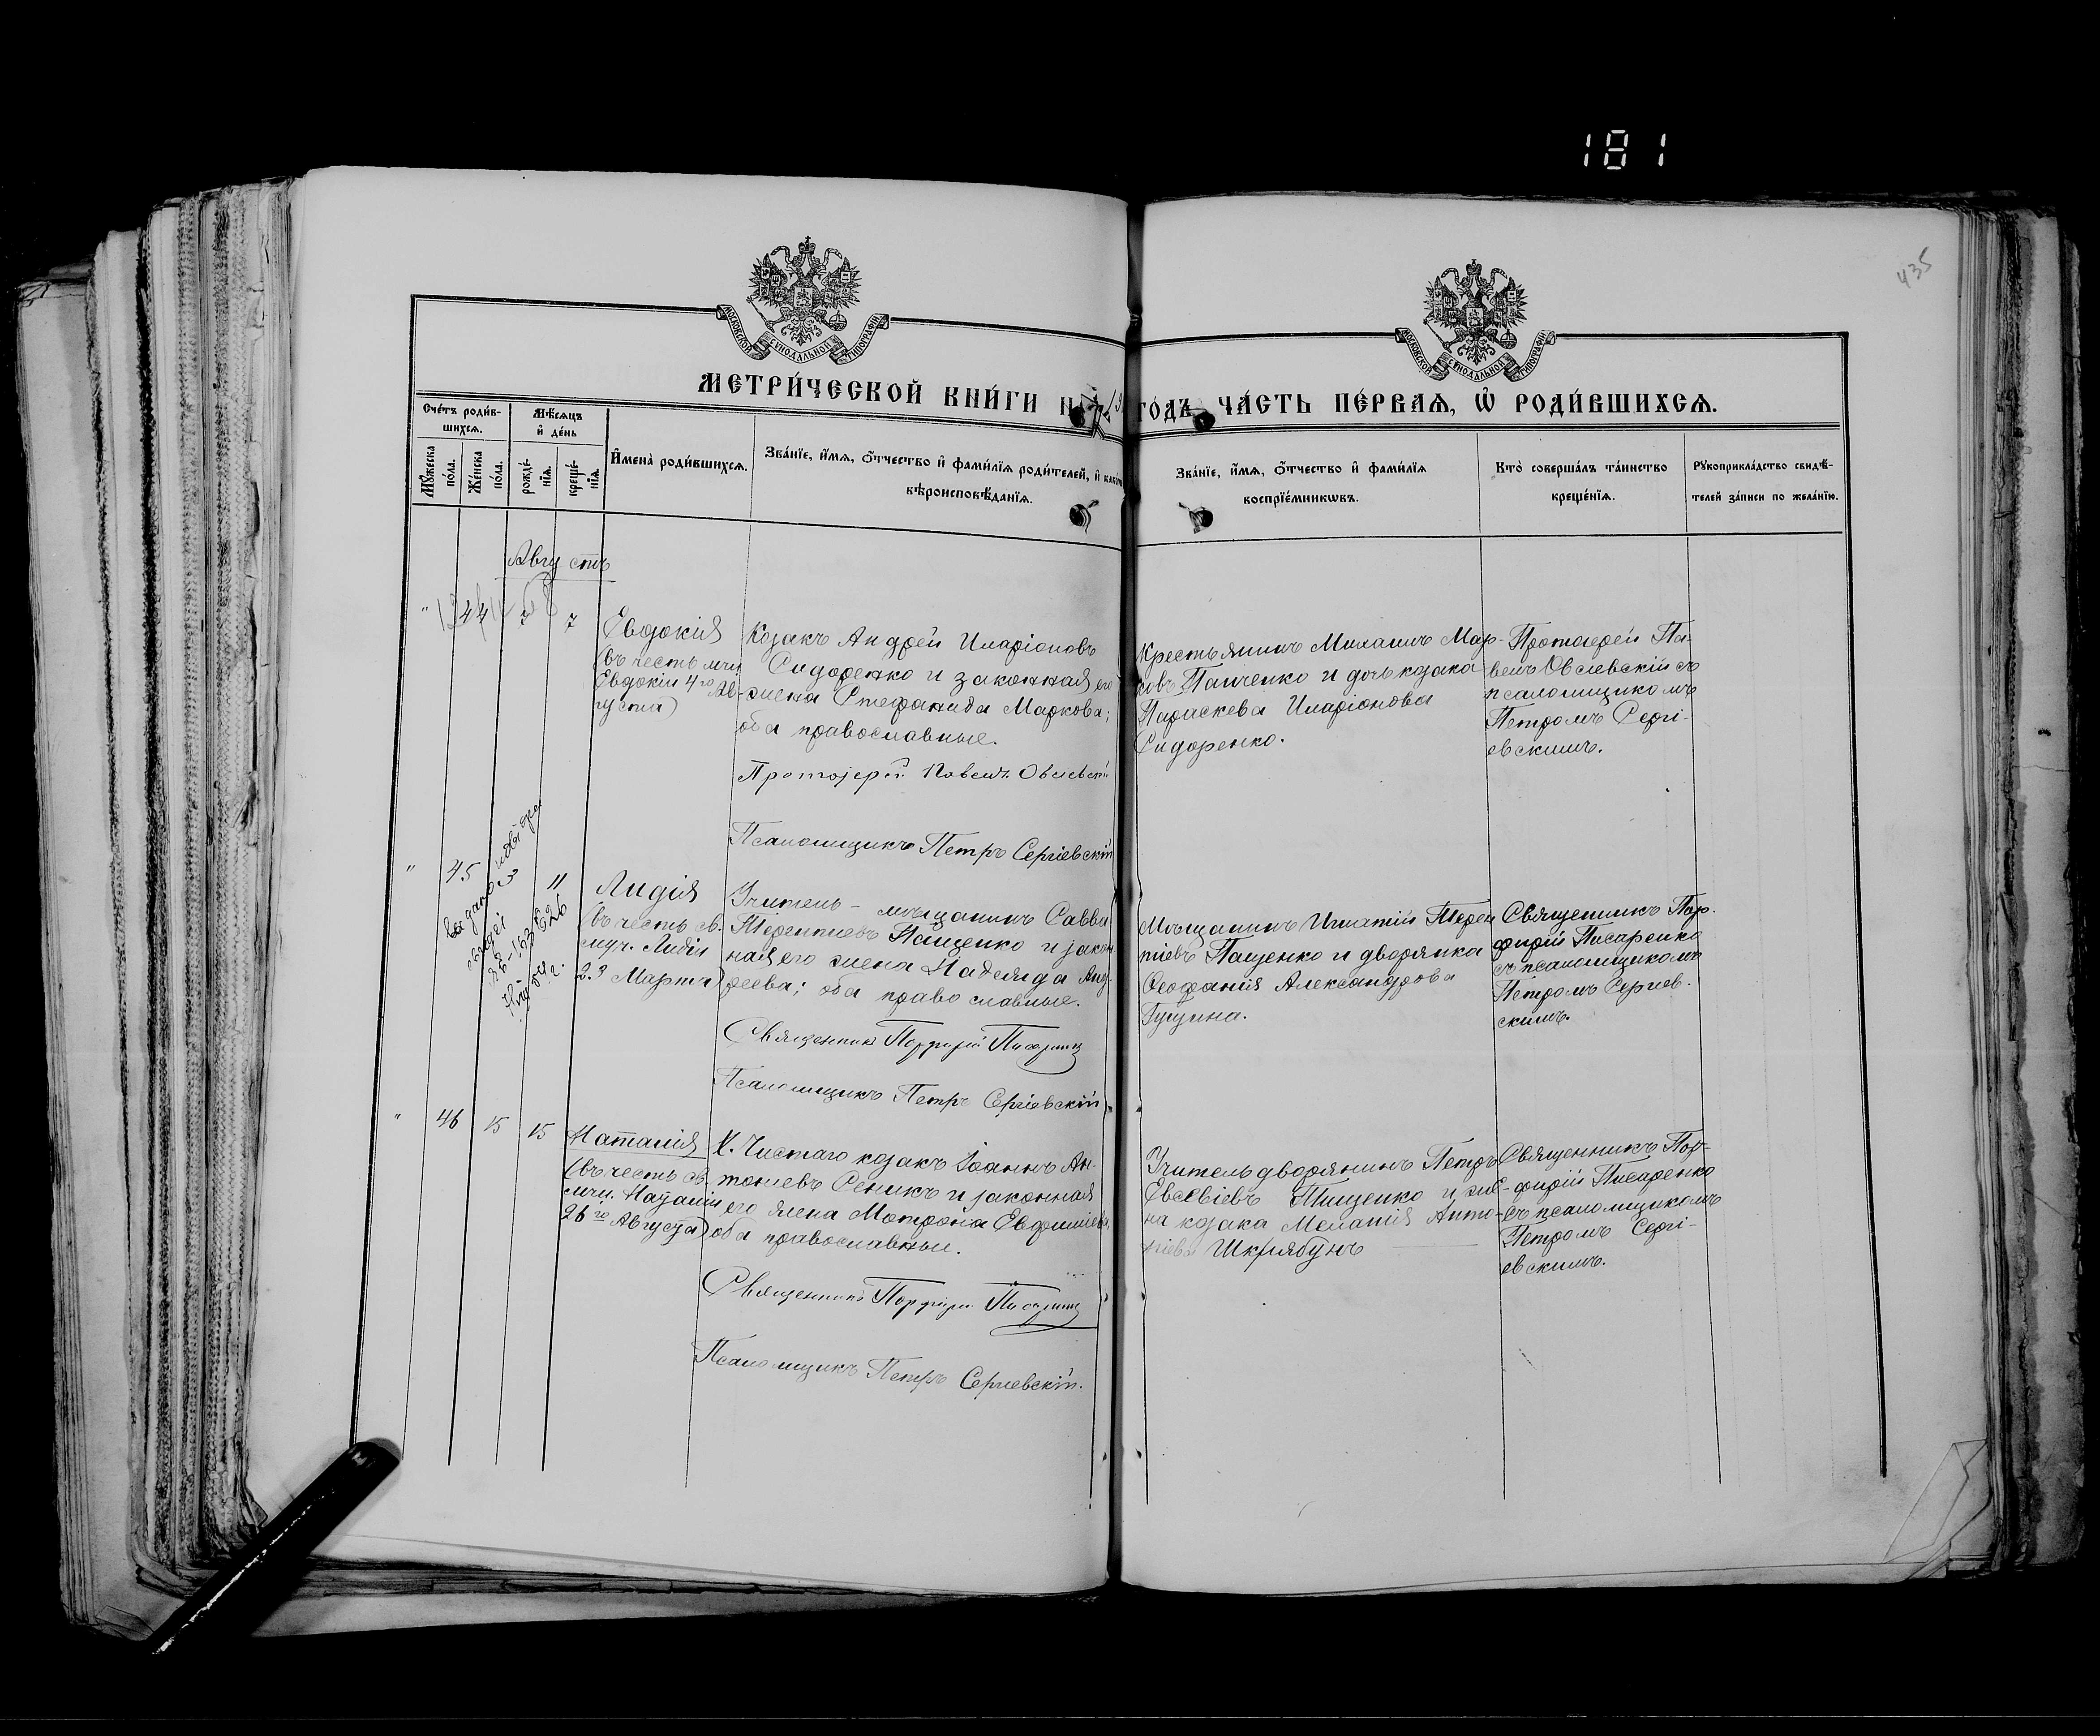 181
435
МОСКОВСКОЙ СѴНОДАЛЬНОЙ ТИПОГРАФІИ
МОСКОВСКОЙ СѴНОДАЛЬНОЙ ТИПОГРАФІИ
МЕТРИ́ЧЕСКОЙ КНИ́ГИ НА
ГО́ДЪ, ЧА́СТЬ ПЕ́РВАѦ, Ѡ҆ РОДИ́ВШИХСѦ.
Сче́тъ роди́в-
шихсѧ.
Мѣ́сѧцъ
и҆ де́нь
Мꙋ́жеска
по́ла.
Же́нска
по́ла.
рожде́-
нїѧ.
креще́-
нїѧ.
И҆мена̀ роди́вшихсѧ.
Зва́нїе, и҆́мѧ, ѻ҆́тчество и҆ фами́лїѧ роди́телей, и҆
вѣроисповѣ́данїѧ.
Зва́нїе, и҆́мѧ, ѻ҆́тчество и҆ фами́лїѧ
воспрїе́мникѡвъ.
Кто̀ соверша́лъ та́инство
креще́нїѧ.
Рꙋкоприкла́дство свидѣ́-
телей за́писи по жела́нїю.
Августъ
" 44 7
Евдокія
(въ честь мчц
Евдокіи 4го Ав-
густа)
Козакъ Андрей Иларіоновъ
Сидоренко и законная его
жена Стефанида Маркова;
оба православные.
Протоіерей Павелъ Овсіевскій
Псаломщикъ Петръ Сергіевскій
Крестьянинъ Михаилъ Мар-
ковъ Панченко и дочь козака
Параскева Иларіонова
Сидоренко.
Протоіерей Па-
велъ Овсіевскій съ
псаломщикомъ
Петромъ Сергі-
евскимъ.
" 45 3 11
Лидія
(въ честь св.
муч. Лидіи
23 Марта)
Учитель - мѣщанинъ Савва
Терентіевъ Пащенко и закон-
ная его жена Надежда Анд-
реева; оба православные.
Священникъ Порфирій Писаренко
Псаломщикъ Петръ Сергіевскій
Мѣщанинъ Игнатій Терен
тіевъ Пащенко и дворянка
Феофанія Александрова
Гущина.
Священникъ Пор-
фирій Писаренко
съ псаломщикомъ
Петромъ Сергіев-
скимъ.
" 46 15 15
Наталія
(въ честь св.
мчц. Наталіи
26го Августа)
Х. Чистаго козакъ Іоаннъ Ан-
тоніевъ Сеникъ и законная
его жена Матрона Евфиміева,
оба православные.
Священникъ Порфирій Писаренко
Псаломщикъ Петръ Сергіевскій.
Учитель дворянинъ Петръ
Евсевіевъ Пищенко и же-
на козака Мелатія Анто-
ніева Шкрябунъ
Священникъ Пор-
фирій Писаренко
съ псаломщикомъ
Петромъ Сергі-
евскимъ.